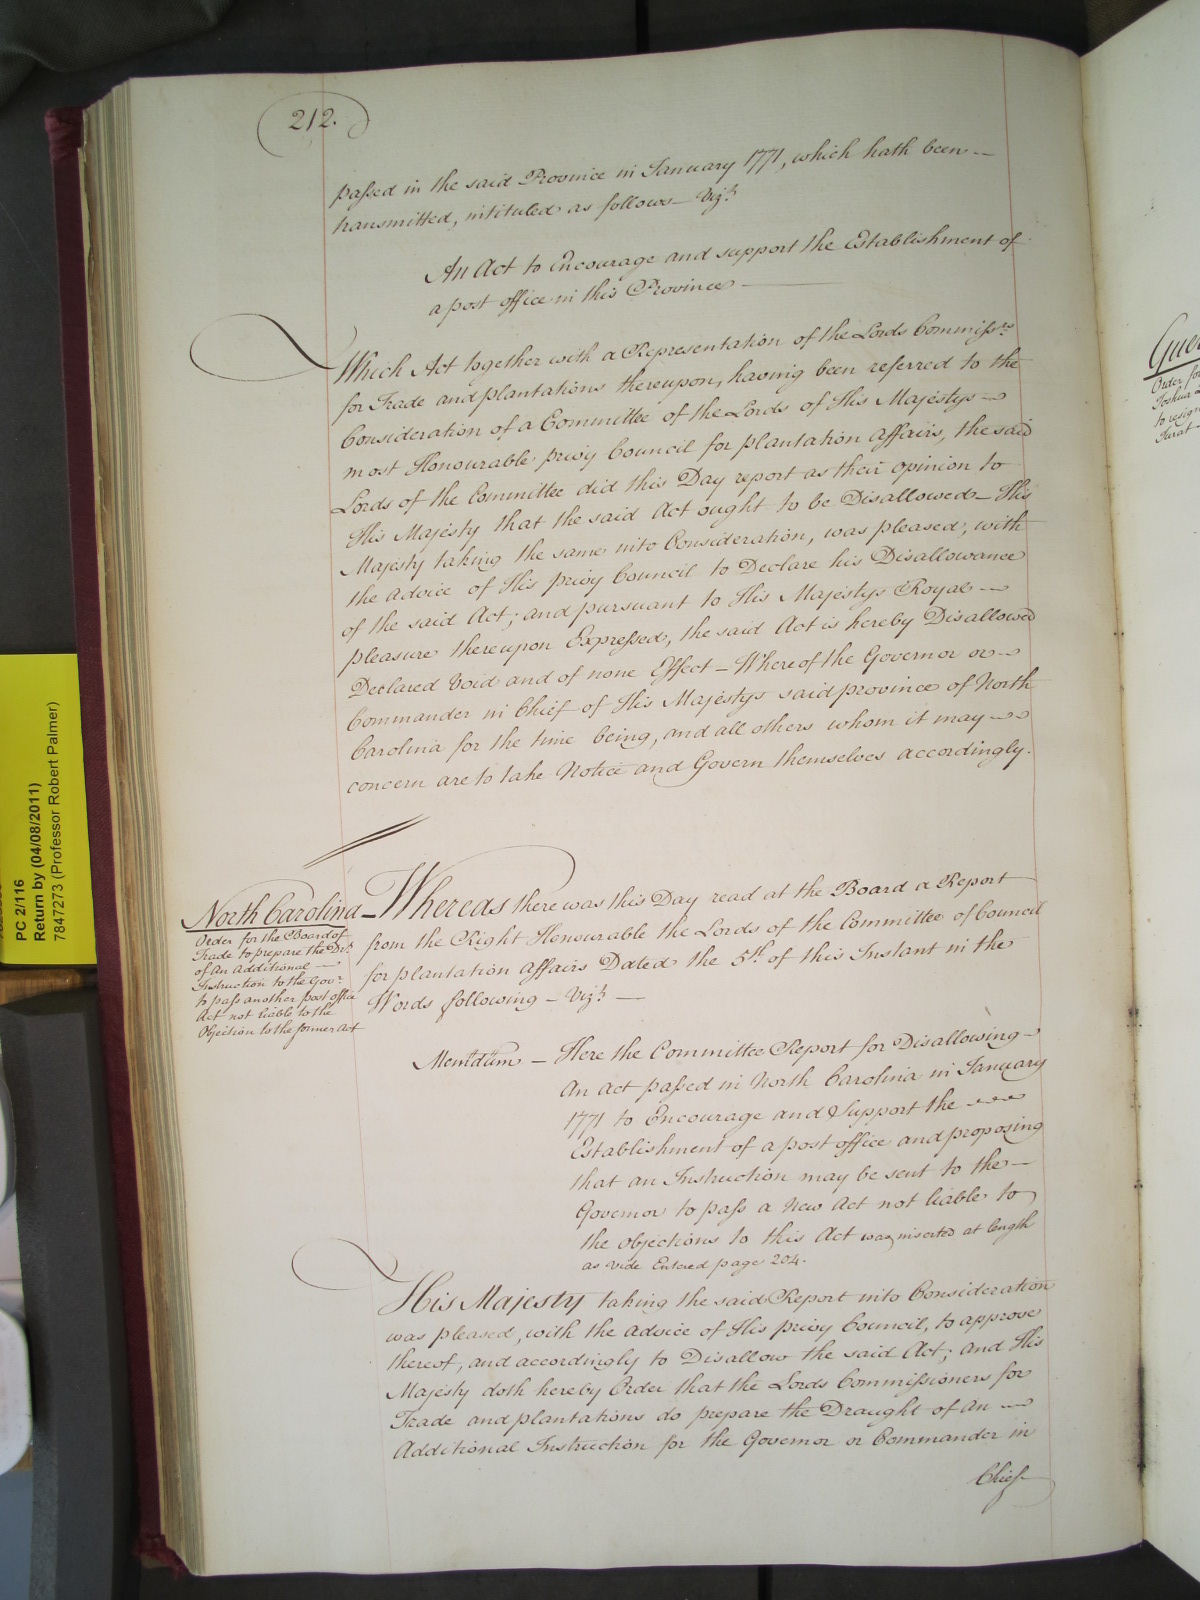 212.
passed in the said Province in January 1771, which hath been
transmitted, intituled as follows — Vizt.
An Act to Encourage and support the Establishment of
a post office in this Province —
Which Act together with a Representation of the Lords Commissrs
for Trade and plantations thereupon, having been referred to the
Consideration of a Committee of the Lords of His Majestys
most Honourable privy Council for plantation affairs, the said
Lords of the Committee did this Day report as their opinion to
His Majesty that the said Act ought to be Disallowed — His
Majesty taking the same into Consideration, was pleased, with
the advice of His privy Council to Declare his Disallowance
of the said Act; and pursuant to His Majestys Royal
pleasure thereupon Expressed, the said Act is hereby Disallowed
Declared Void and of none Effect — Whereof the Governor or
Commander in Chief of His Majestys said province of North
Carolina for the time being, and all others whom it may
concern are to take Notice and Govern themselves accordingly.
North Carolina
Order for the Board of
Trade to prepare the Dt.
of An Additional
Instruction to the Govr.
to pass another post office
Act not liable to the
Objection to the former Act
Whereas there was this Day read at the Board a Report
from the Right Honourable the Lords of the Committee of Council
for plantation affairs Dated the 5th. of this Instant in the
Words following — Vizt. —
Memdum — Here the Committee Report for Disallowing
An act passed in North Carolina in January
1771 to Encourage and Support the
Establishment of a post office and proposing
that an Instruction may be sent to the
Governor to pass a New Act not liable to
the objections to this Act was inserted at length
as vide Entered page 204.
His Majesty taking the said Report into Consideration
was pleased, with the advice of His privy Council, to approve
thereof, and accordingly to Disallow the said Act; and His
Majesty doth hereby Order that the Lords Commissioners for
Trade and plantations do prepare the Draught of An
Additional Instruction for the Governor or Commander in
Chief
PC 2/116
Return by (04/08/2011)
7847273 (Professor Robert Palmer)
Order for
Joshua
to resign
Jurat